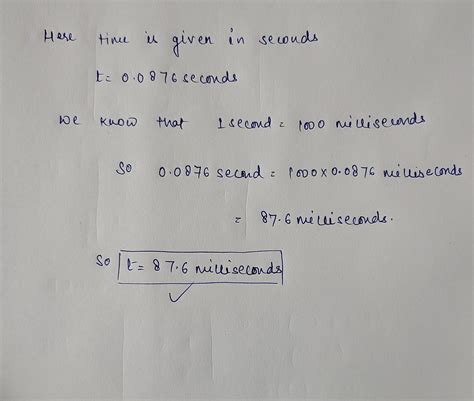 Here time is given in seconds
t= 0.0876 seconds
we know that 1 second = 1000 milliseconds
So 0.0876 second = 1000×0.0876 milliseconds
= 87.6 milliseconds.
So t= 87.6 milliseconds